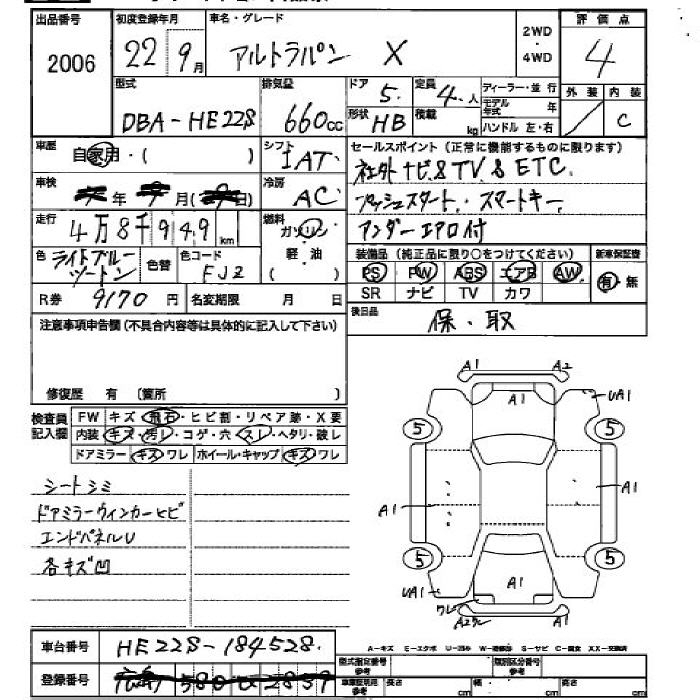 出品番号 初度登録年月 車名・グレード 2WD・4WD 評価点
2006 22 9月 アルトラパン X 4
型式 排気量 ドア 定員 ディーラー・並行 外装 内装
DBA-HE22S 660cc 5 4人 モデル年式 年 / C
形状 HB 積載 kg ハンドル 左・右
車歴 自家用・( ) シフト IAT セールスポイント(正常に機能するものに限ります)
社外ナビ&TV&ETC
車検 年 月( 日) 冷房 AC プッシュスタート、スマートキー
走行 4万8千949km 燃料 ガソリン・軽油・( ) アンダーエアロ付
色 ライトブルーツートン 色替 色コード FJ2 装備品(純正品に限り○をつけてください) 新車保証書
PS PW ABS エアB AW 有・無
SR ナビ TV カワ
R券 9170円 名変期限 月 日 後日品 保・取
注意事項申告欄(不具合内容等は具体的に記入して下さい)
修復歴 有 (箇所 )
検査員記入欄 FW キズ・飛石・ヒビ割・リペア跡・X要
内装 キズ・汚レ・コゲ・穴・スレ・ヘタリ・破レ
ドアミラー キズ・ワレ ホイール・キャップ キズ・ワレ
シートシミ
ドアミラーウィンカーヒビ
エンドパネルU
各キズ凹
A1 A2
A1 UA1
5 5
A1 A1
5 5
UA1 A1
ワレ
A2
A-キズ E-エクボ U-凹み W-補修跡 S-サビ C-腐食 XX-交換済
車台番号 HE22S-184528
登録番号
型式指定番号 参考 類別区分番号 参考
車庫証明用 参考 長さ cm 幅 cm 高さ cm